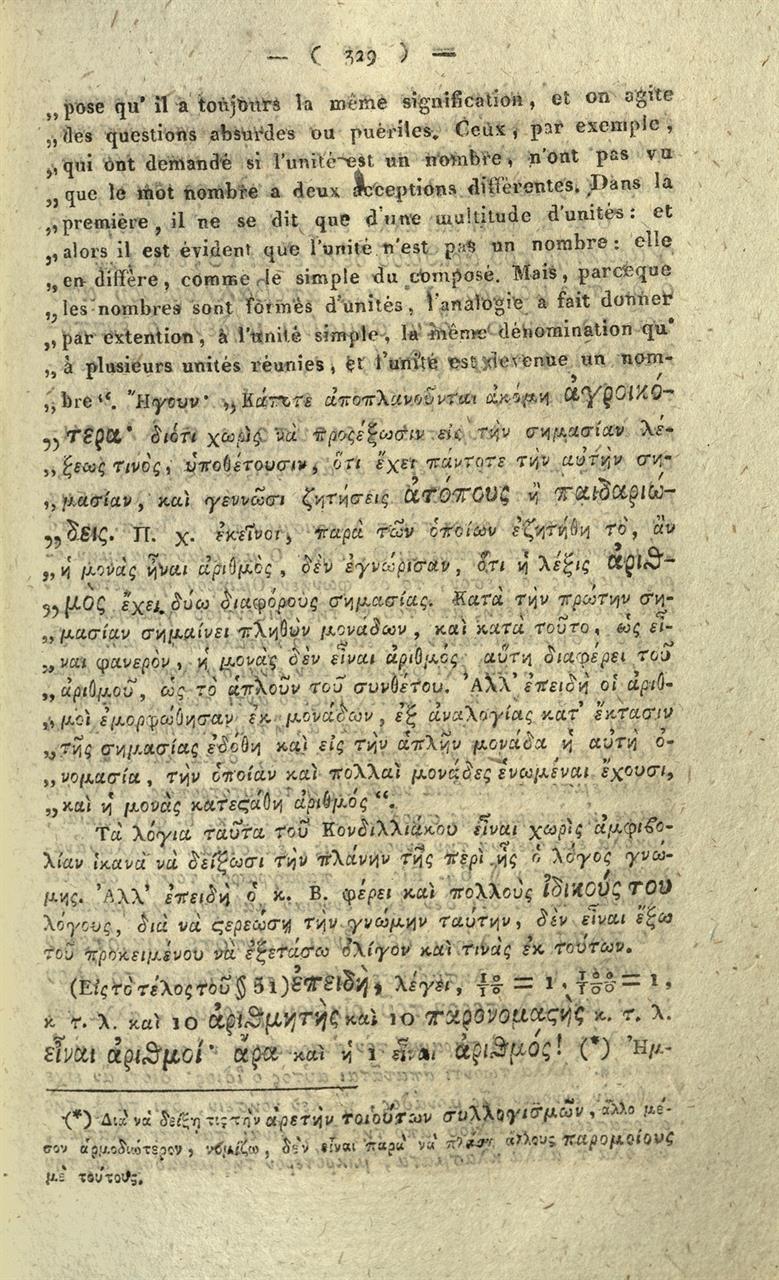 — ( 329 ) —
„pose qu' il a toujours la même signification, et on agite
„des questions absurdes ou puériles. Ceux, par exemple,
„qui ont demandé si l'unité est un nombre, n'ont pas vu
„que le mot nombre a deux acceptions différentes. Dans la
„première, il ne se dit que d'une multitude d'unités: et
„alors il est évident que l'unité n'est pas un nombre: elle
„en diffère, comme le simple du composé. Mais, parceque
„les nombres sont formés d'unités, l'analogie a fait donner
„par extention, à l'unité simple, la même dénomination qu'
„à plusieurs unités réunies, et l'unité est devenue un nom-
„bre“. Ἤγουν· „Κάποτε ἀποπλανοῦνται ἀκόμη ἀγροικό-
„τερα· διότι χωρὶς νὰ προςέξωσιν εἰς τὴν σημασίαν λέ-
„ξεως τινὸς, ὑποθέτουσιν, ὅτι ἔχει πάντοτε τὴν αὐτὴν ση-
„μασίαν, καὶ γεννῶσι ζητήσεις ἀτόπους ἢ παιδαριώ-
„δεις. Π. χ. ἐκεῖνοι, παρὰ τῶν ὁποίων ἐζητήθη τὸ, ἂν
„ἡ μονὰς ἦναι ἀριθμὸς, δὲν ἐγνώρισαν, ὅτι ἡ λέξις ἀριθ-
„μὸς ἔχει δύω διαφόρους σημασίας. Κατὰ τὴν πρώτην ση-
„μασίαν σημαίνει πληθὺν μονάδων, καὶ κατὰ τοῦτο, ὡς εἶ-
„ναι φανερὸν, ἡ μονὰς δὲν εἶναι ἀριθμός· αὕτη διαφέρει τοῦ
„ἀριθμοῦ, ὡς τὸ ἁπλοῦν τοῦ συνθέτου. Ἀλλ' ἐπειδὴ οἱ ἀριθ-
„μοὶ ἐμορφώθησαν ἐκ μονάδων, ἐξ ἀναλογίας κατ' ἔκτασιν
„τῆς σημασίας ἐδόθη καὶ εἰς τὴν ἁπλῆν μονάδα ἡ αὐτὴ ὀ-
„νομασία, τὴν ὁποίαν καὶ πολλαὶ μονάδες ἑνωμέναι ἔχουσι,
„καὶ ἡ μονὰς κατεςάθη ἀριθμός“.
Τὰ λόγια ταῦτα τοῦ Κονδιλλιάκου εἶναι χωρὶς ἀμφιβο-
λίαν ἱκανὰ νὰ δείξωσι τὴν πλάνην τῆς περὶ ἧς ὁ λόγος γνώ-
μης. Ἀλλ' ἐπειδὴ ὁ κ. Β. φέρει καὶ πολλοὺς ἰδικούς του
λόγους, διὰ νὰ ςερεώσῃ τὴν γνώμην ταύτην, δὲν εἶναι ἔξω
τοῦ προκειμένου νὰ ἐξετάσω ὀλίγον καὶ τινὰς ἐκ τούτων.
(Εἰς τὸ τέλος τοῦ § 51) ἐπειδὴ, λέγει, 10/10 = 1, 100/100 = 1,
κ. τ. λ. καὶ 10 ἀριθμητὴς καὶ 10 παρονομαςὴς κ. τ. λ.
εἶναι ἀριθμοί· ἄρα καὶ ἡ 1 εἶναι ἀριθμός! (*) Ἡμ-
(*) Διὰ νὰ δείξῃ τις τὴν ἀρετὴν τοιούτων συλλογισμῶν, ἄλλο μέ-
σον ἁρμοδιώτερον, νομίζω, δὲν εἶναι παρὰ νὰ πλάσῃ ἄλλους παρομοίους
μὲ τούτους.